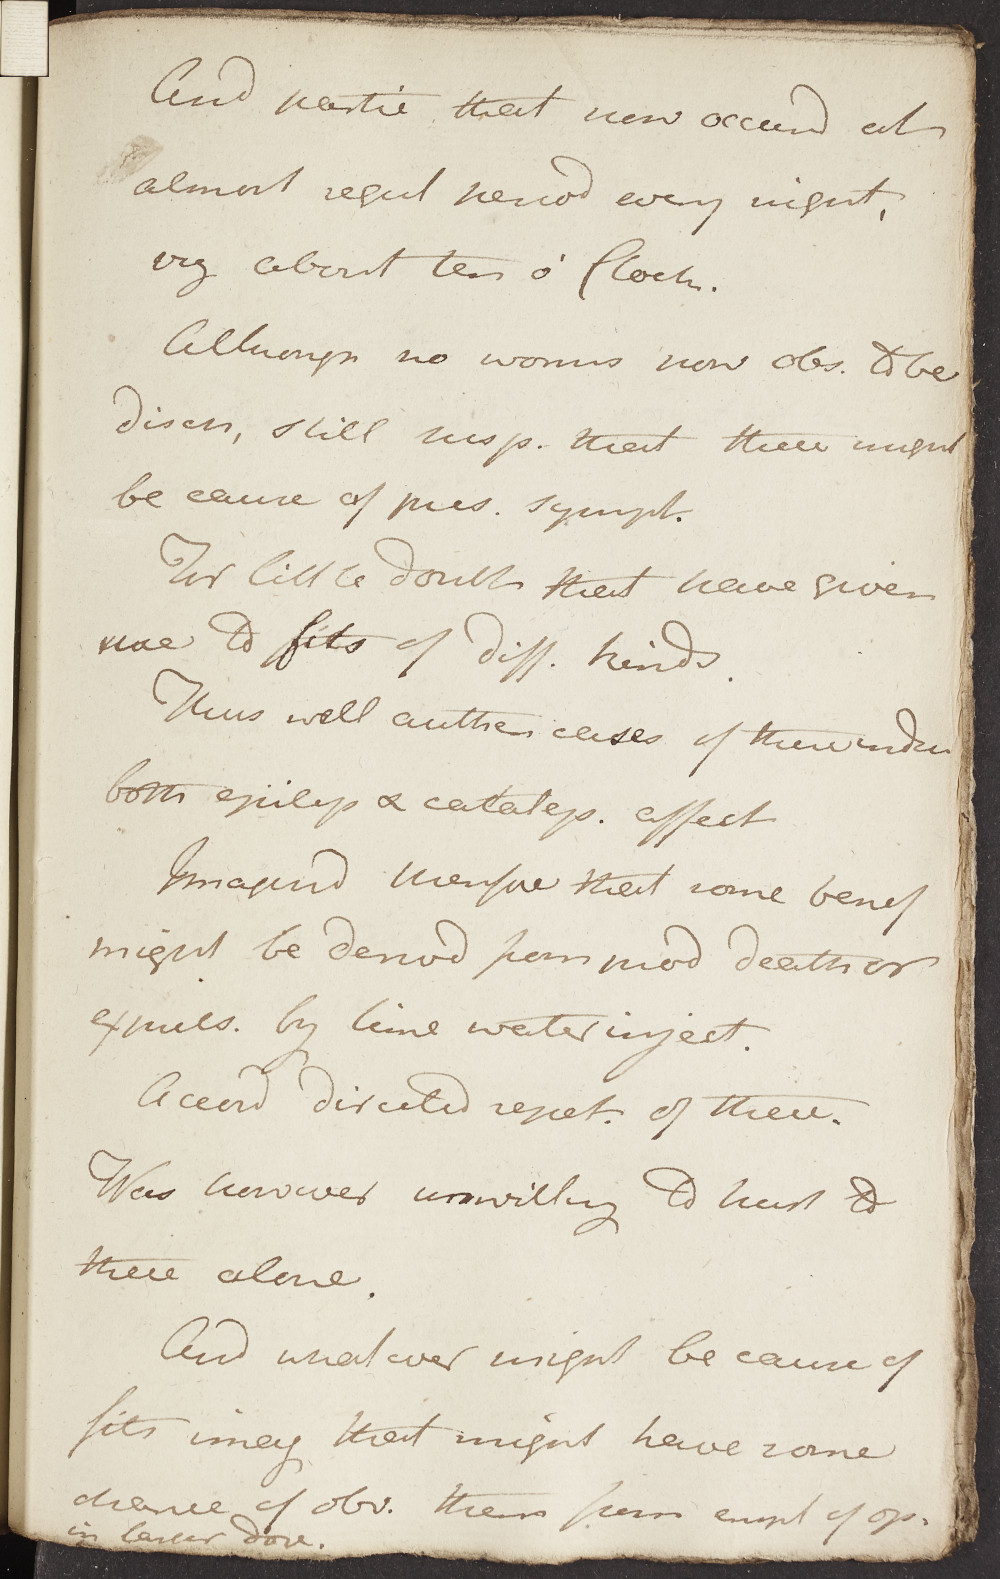 And partic that now occurd at
almost regul period every night,
viz about ten o' Clock.
Although no worms now obs. to be
disch, still susp. that these might
be cause of pres. sympt.
For little doubt that have given
rise to fits of diff. kinds.
Thus well authen cases of these under
both epilep & cataleps. affect
Imagind therefore that some benef
might be derivd from prod death or
expuls. by lime water inject.
Accord directed repet. of these.
Was however unwilling to trust to
these alone.
And whatever might be cause of
fits imag that might have some
chance of obv. them from empl of op.
in larger dose.